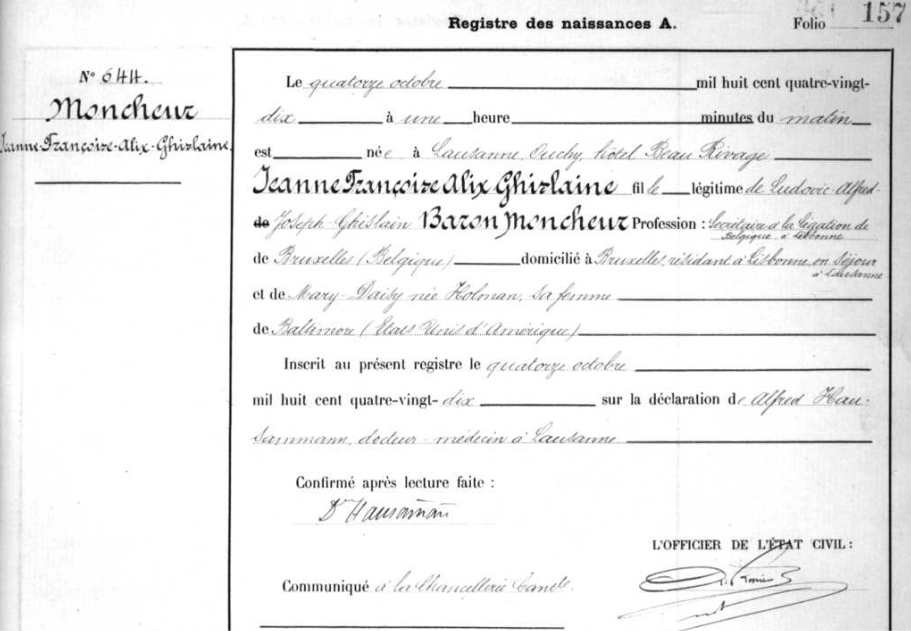 Registre des naissances A.
Folio 157
N° 644.
Moncheur
Jeanne-Françoise-Alix-Ghislaine.
Le quatorze octobre mil huit cent quatre-vingt-
dix à une heure minutes du matin
est née à Lausanne, Ouchy, hôtel Beau Rivage
Jeanne Françoise Alix Ghislaine fille légitime de Ludovic-Alfred-
de Joseph-Ghislain Baron Moncheur Profession : Secrétaire à la Légation de
Belgique, à Lisbonne
de Bruxelles (Belgique) domicilié à Bruxelles, résidant à Lisbonne, en séjour
à Lausanne
et de Mary-Daisy née Holman, sa femme
de Baltimore (Etats Unis d'Amérique)
Inscrit au présent registre le quatorze octobre
mil huit cent quatre-vingt-dix sur la déclaration de Alfred Hau-
sammann, docteur-médecin à Lausanne
Confirmé après lecture faite :
Dr Hausamann
L'OFFICIER DE L'ÉTAT CIVIL :
Communiqué à la Chancellerie Cantle.